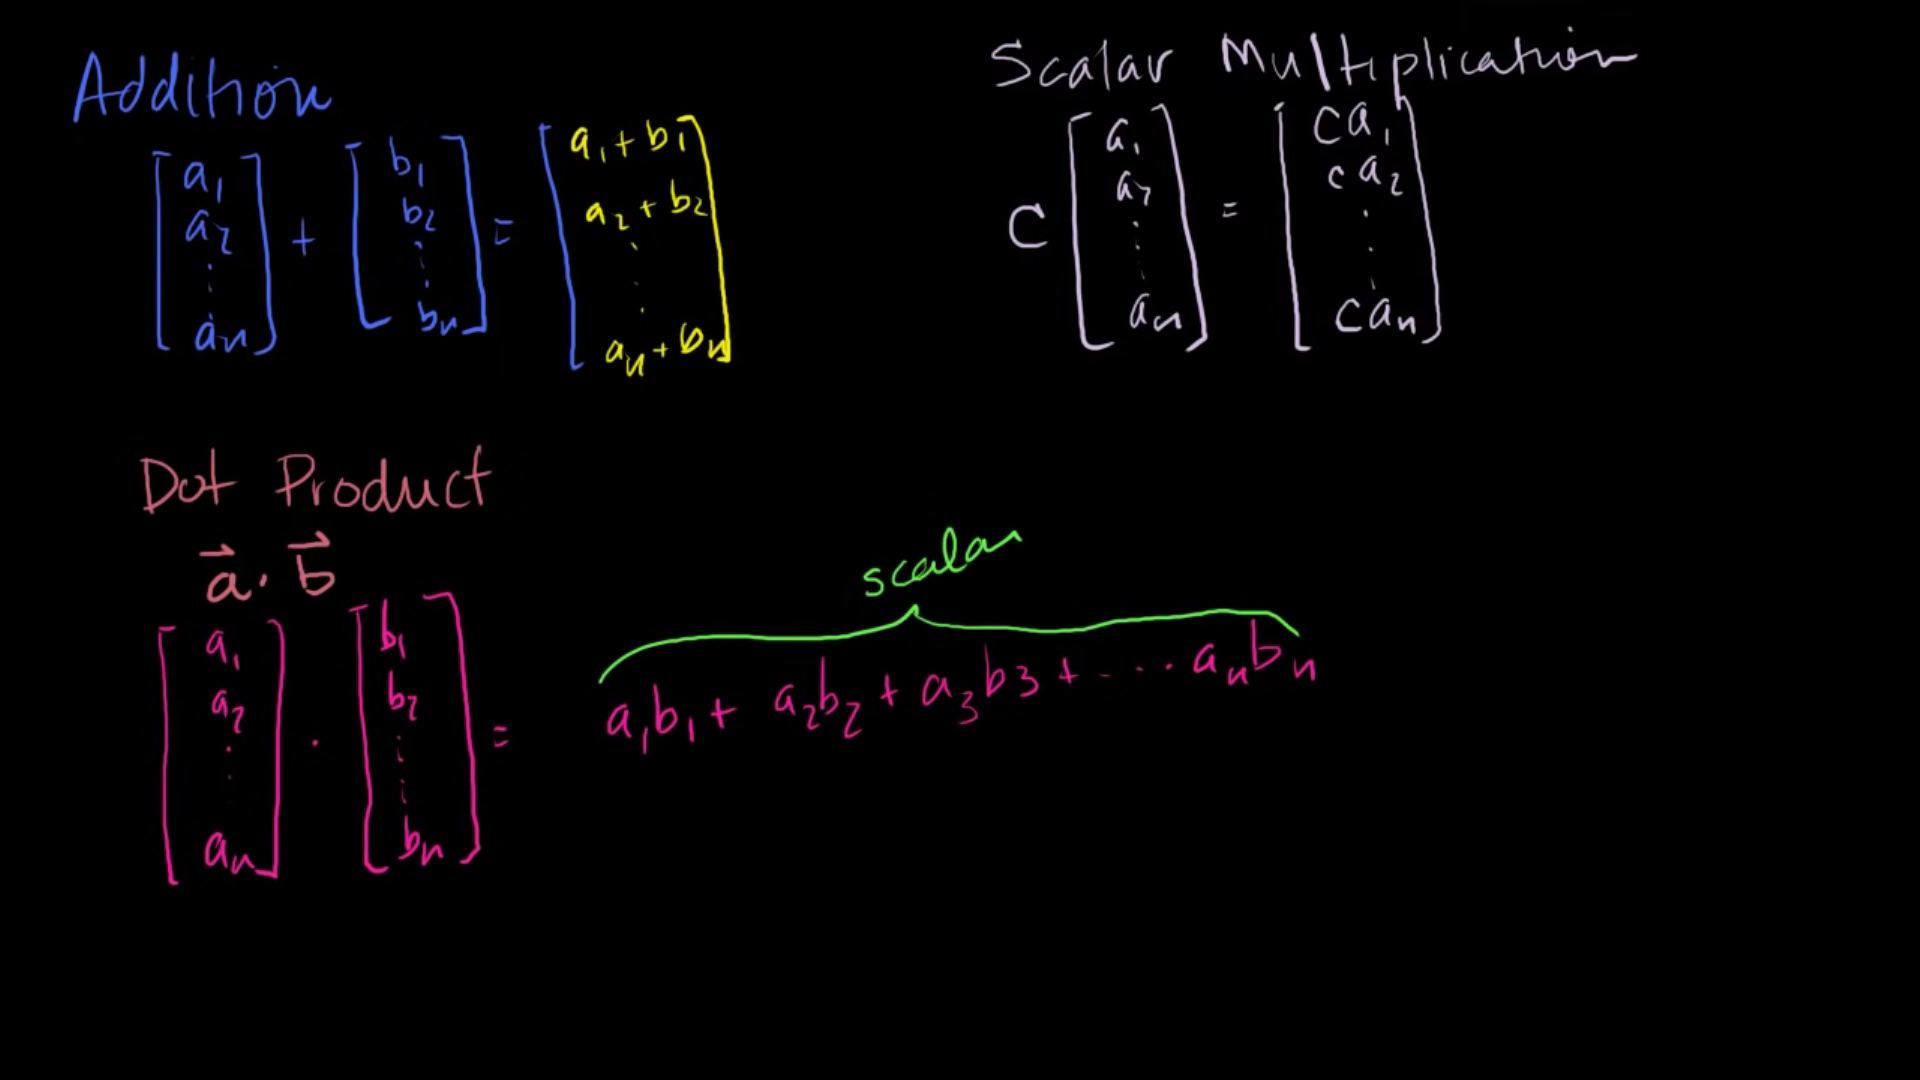 Addition
[a₁ a₂ ⋮ aₙ] + [b₁ b₂ ⋮ bₙ] = [a₁ + b₁ a₂ + b₂ ⋮ aₙ + bₙ]
Scalar Multiplication
c [a₁ a₂ ⋮ aₙ] = [ca₁ ca₂ ⋮ caₙ]
Dot Product
a⃗ · b⃗
scalar
[a₁ a₂ ⋮ aₙ] · [b₁ b₂ ⋮ bₙ] = a₁b₁ + a₂b₂ + a₃b₃ + ... aₙbₙ